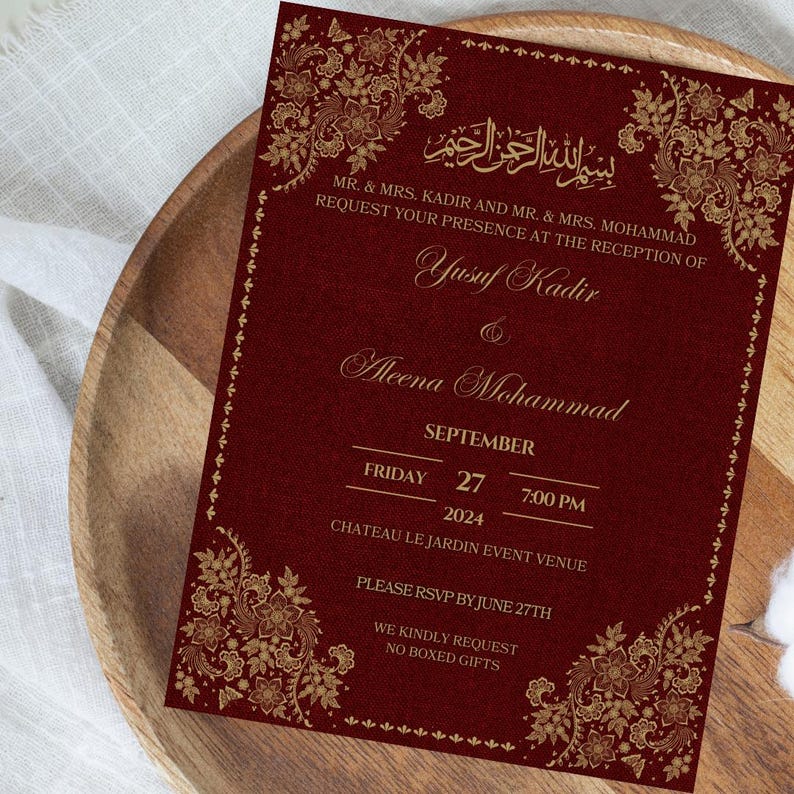 بسم الله الرحمن الرحيم
MR. & MRS. KADIR AND MR. & MRS. MOHAMMAD
REQUEST YOUR PRESENCE AT THE RECEPTION OF
Yusuf Kadir
&
Aleena Mohammad
SEPTEMBER
FRIDAY 27 7:00 PM
2024
CHATEAU LE JARDIN EVENT VENUE
PLEASE RSVP BY JUNE 27TH
WE KINDLY REQUEST
NO BOXED GIFTS